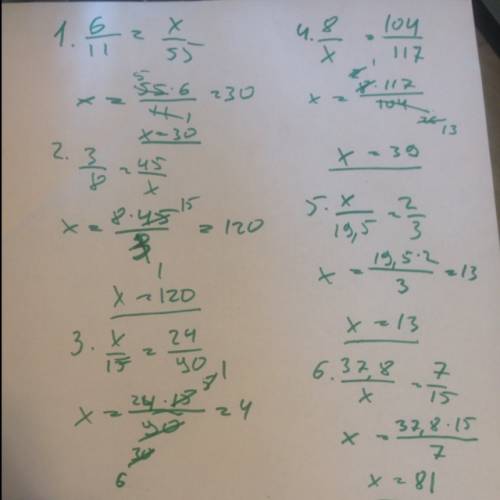 1. 6/11 = x/55
x = 55·6/11 = 30
x = 30
2. 3/8 = 45/x
x = 8·45/3 = 120
x = 120
3. x/15 = 24/90
x = 24·15/90 = 4
4. 8/x = 104/117
x = 8·117/104
x = 39
5. x/19,5 = 2/3
x = 19,5·2/3 = 13
x = 13
6. 37,8/x = 7/15
x = 37,8·15/7
x = 81